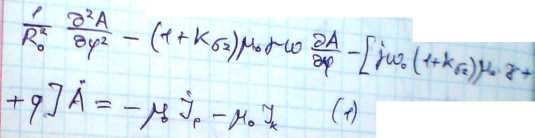 1/R₀² ∂²A/∂φ² − (1+k_δ2) μ₀ γ ω ∂A/∂φ − [jω₀ (1+k_δ2) μ₀ · γ +
+ q] Ȧ = − μ₀ J̇_p − μ₀ J_k (1)